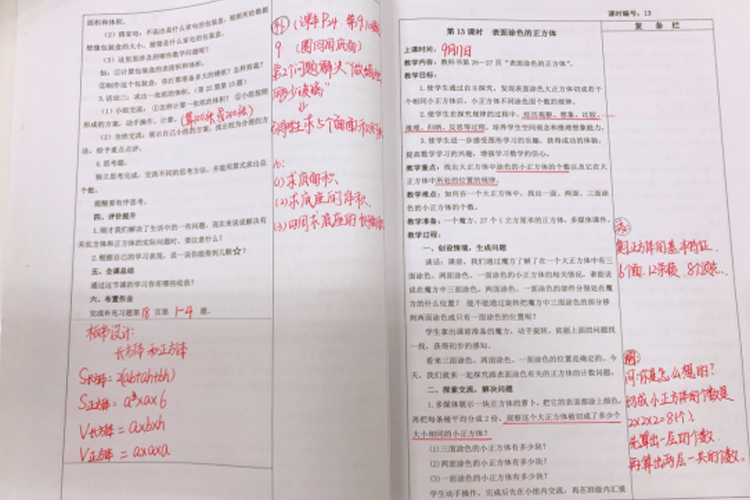 面积和体积。
(2)课件
想像包装盒的大小,猜猜是什么家电的包装盒。
(3)这里面涉及到哪些数学问题呢?
如:①计算包装盒的表面积和体积。
②制作这个包装盒,你打算准备多大的硬纸?怎样剪裁?
3.活动三:求出一张纸的体积。(第25页第13题)
(1)小组交流:①怎样计算一张纸的体积?②小组按照
形成的方案,动手操作、计算。
(2)全班交流:展示自己小组的方案,找出较为合理的方
法,给予重点点评。
4.思考题。
独立思考完成,交流不同的思考方法,并能用算式求出总
个数。
提醒要有序思考。
四、评价提升
1.刚才我们解决了生活中的一些问题,现在来谈谈解决有
关长方体和正方体的实际问题时,要注意什么?
2.根据自己的学习表现,说一说你能得到几颗☆?
五、全课总结
通过这节课的学习你有哪些收获?
六、布置作业
完成补充习题第18页第1-4题。
板书设计:
长方体和正方体
S长方体=2(ab+ah+bh)
S正方体=a×a×6
V长方体=a×b×h
V正方体=a×a×a
9.
第2个问题解决
(1)求底面积
(2)求底座的体积
(3)四周求底座的
课时编号:13
第13课时 表面涂色的正方体
复备栏
上课时间:9月17日
教学内容:教科书第26~27页“表面涂色的正方体”。
教学目标:
1.使学生通过自主探究,发现表面涂色大正方体切成若干
个相同小正方体后,小正方体不同涂色面个数的规律。
2.使学生在探究规律的过程中,经历观察、想象、比较、
推理、归纳、反思等过程,培养学生空间观念和推理想象能力。
3.使学生进一步感受图形学习的乐趣,获得成功的体验,
提高数学学习的兴趣,增强学习数学的信心。
教学重点:找出大正方体中涂色的小正方体的个数以及它在大
正方体中所处的位置的规律。
教学难点:如何在一个大正方体中,找出一面、两面、三面涂
色的小正方体的个数。
教学准备:一个魔方、27个1立方厘米的正方体、多媒体课件。
教学过程:
一、创设情境,生成问题
谈话:课前,我们通过魔方了解了在一个大正方体中有三
面涂色、两面涂色、一面涂色的小正方体的相关情况,谁能说
说在魔方中三面涂色、两面涂色、一面涂色的部件分别处在魔
方的什么位置?能不能通过旋转把魔方中三面涂色的部分移
到两面涂色或只有一面涂色的位置呢?
学生拿出课前准备的魔方,动手旋转,依据上面的问题找
一找,获得初步的感知。
看来三面涂色、两面涂色、一面涂色的位置是确定的,今
天,我们就来一起探究跟表面涂色有关的正方体的计数问题。
二、探索交流,解决问题
1.多媒体展示一块正方体的萝卜,把它的表面都涂上颜色,
再把每条棱平均分成2份,观察这个大正方体被切成了多少个
大小相同的小正方体?
(1)三面涂色的小正方体有多少块?
(2)两面涂色的小正方体有多少块?
(3)一面涂色的小正方体有多少块?
学生动手操作,完成后先在小组内交流,再在班级内汇报
复习正方体的基本特征
6个面、12条棱、8个顶点。
问:你是怎么想的?
切成小正方体的个数是
2×2×2=8(个)
先算出一层的个数
再算出两层一共的个数。